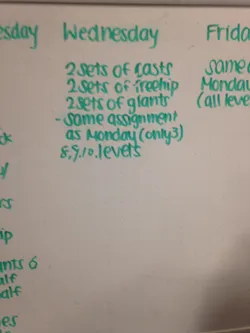 esday Wednesday Frida
2 sets of casts same
2 sets of freehip Monday
2 sets of giants (all leve
- same assignment
as Monday (only 3)
8,9,10. levels
ip
ants 6
alf
alf
es